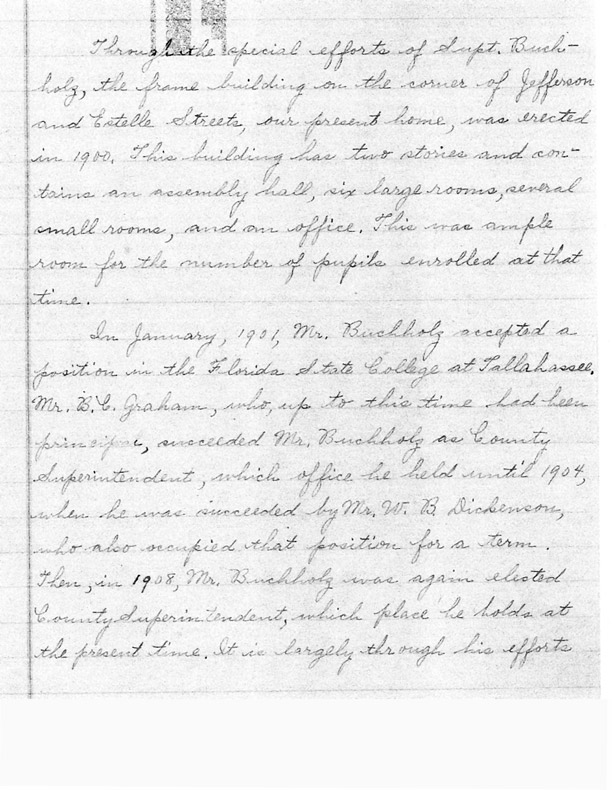 Through the special efforts of Supt. Buch-
holz, the frame building on the corner of Jefferson
and Estelle Streets, our present home, was erected
in 1900. This building has two stories and con-
tains an assembly hall, six large rooms, several
small rooms, and an office. This was ample
room for the number of pupils enrolled at that
time.
In January, 1901, Mr. Buchholz accepted a
position in the Florida State College at Tallahassee.
Mr. B.C. Graham, who, up to this time had been
principal, succeeded Mr. Buchholz as County
Superintendent, which office he held until 1904,
when he was succeeded by Mr. W. B. Dickenson,
who also occupied that position for a term.
Then, in 1908, Mr. Buchholz was again elected
County Superintendent, which place he holds at
the present time. It is largely through his efforts